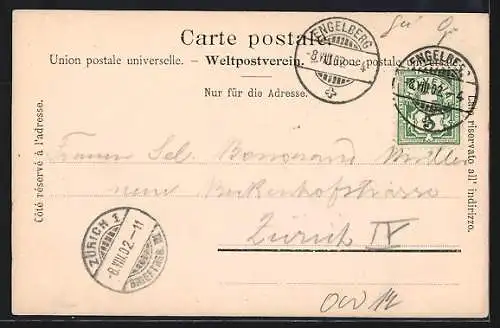 Carte postale.
Union postale universelle. – Weltpostverein. – Unione postale universale
Nur für die Adresse.
Côté réservé à l'adresse.
Lato riservato all' indirizzo.
ENGELBERG
-8.VIII.02.-4
ENGELBERG
-8.VIII.02.-4
5
Frauen Sel. Müller
Zürich IV
ZÜRICH 1
-8.VIII.02.-11